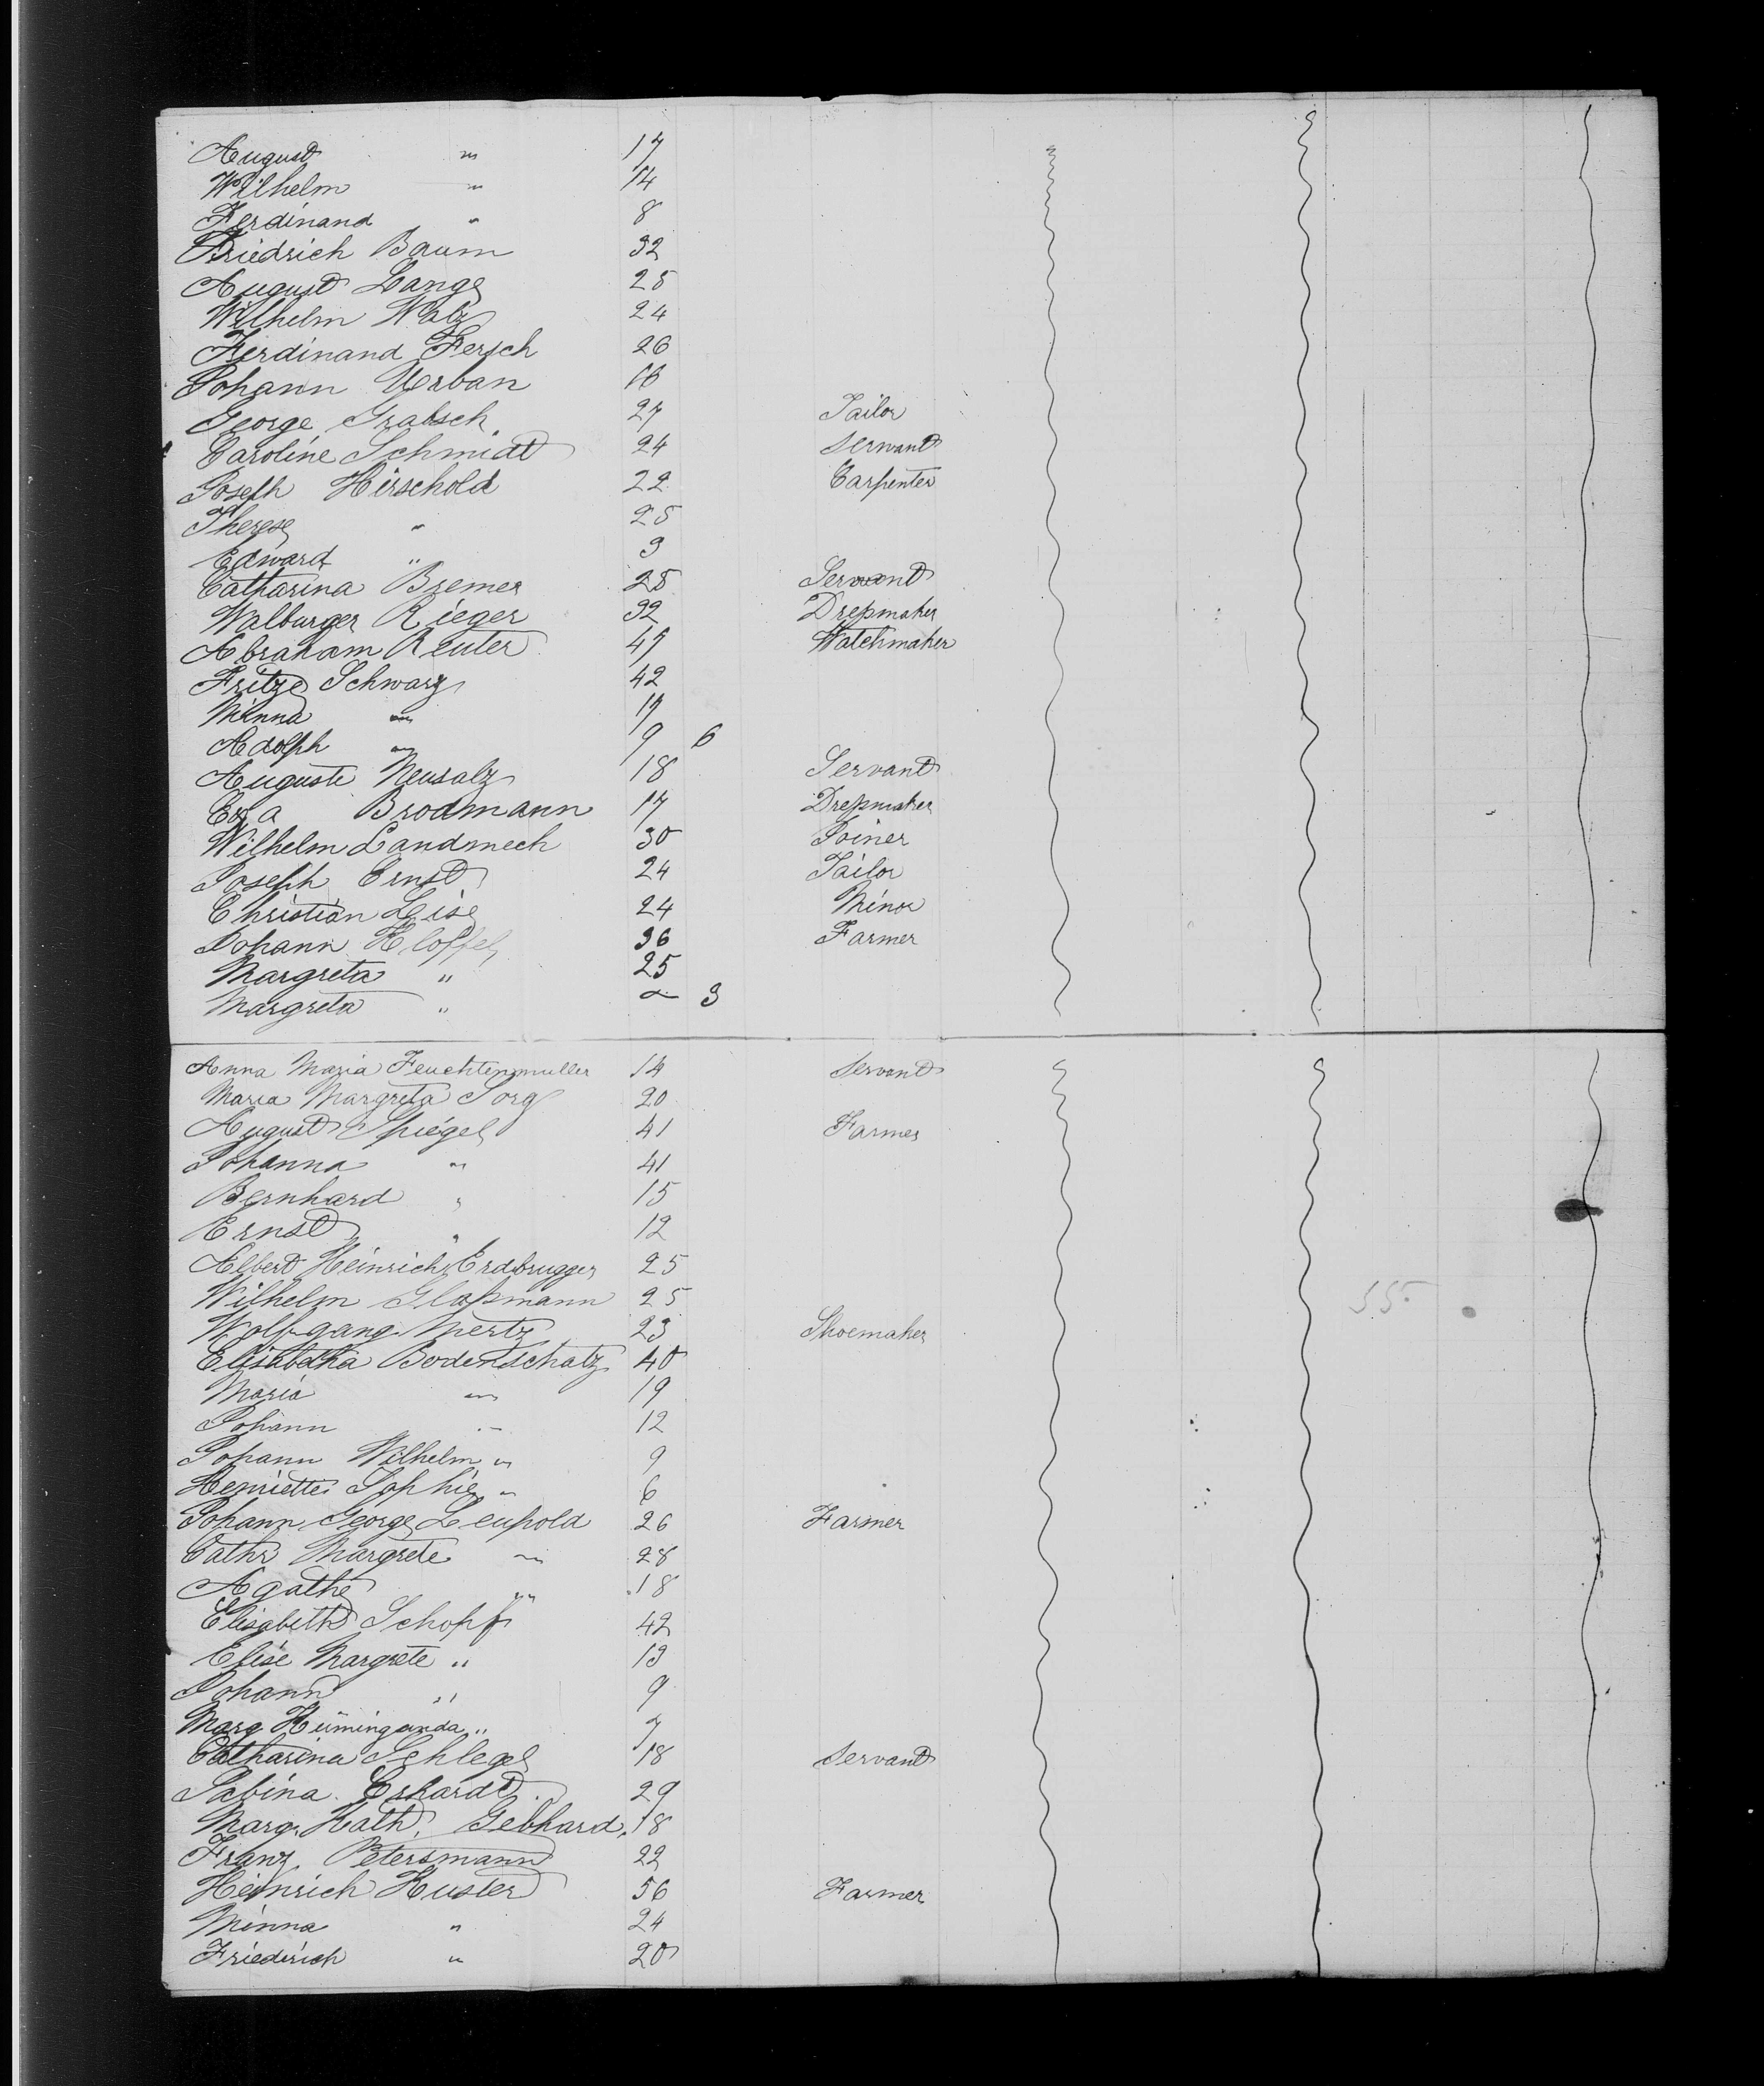 August " 17
Wilhelm " 14
Ferdinand " 8
Friedrich Baum 32
August Lange 25
Wilhelm Walz 24
Ferdinand Fersch 26
Johann Urban 16
George Grabsch 27 Tailor
Caroline Schmidt 24 Servant
Joseph Hirschold 22 Carpenter
Therese " 25
Edward " 3
Catharina Bremer 25 Servant
Walburger Rieger 32 Dressmaker
Abraham Reuter 47 Watchmaker
Fritze Schwarz 42
Minna " 17
Adolph " 9 6
Auguste Neusalz 18 Servant
Brodmann 17 Dressmaker
Wilhelm Landmech 30 Joiner
Joseph Ernst 24 Tailor
Christian Leise 24 Minor
Johann Kloffel 36 Farmer
Margreta " 25
Margreta " 3
Anna Maria Feuchtenmuller 14 Servant
Maria Margreta Sorg 20
August Spiegel 41 Farmer
Johanna " 41
Bernhard " 15
Ernst " 12
Albert Heinrich Erdbrugger 25
Wilhelm Glassmann 25
55.
Wolfgang Mertz 23 Shoemaker
Elisabetha Bodenschatz 40
Maria " 19
Johann " 12
Johann Wilhelm " 9
Henriette Sophie " 6
Johann George Leupold 26 Farmer
Cathr Margrete " 28
Agathe " 18
Elisabeth Schopf 42
Elise Margrete " 13
Johann " 9
Marg " 7
Catharina Schlegel 18 Servant
Sabina Erhardt 29
Marg. Kath. Gebhard 18
Franz Petersmann 22
Heinrich Kuster 56 Farmer
Minna " 24
Friederich " 20